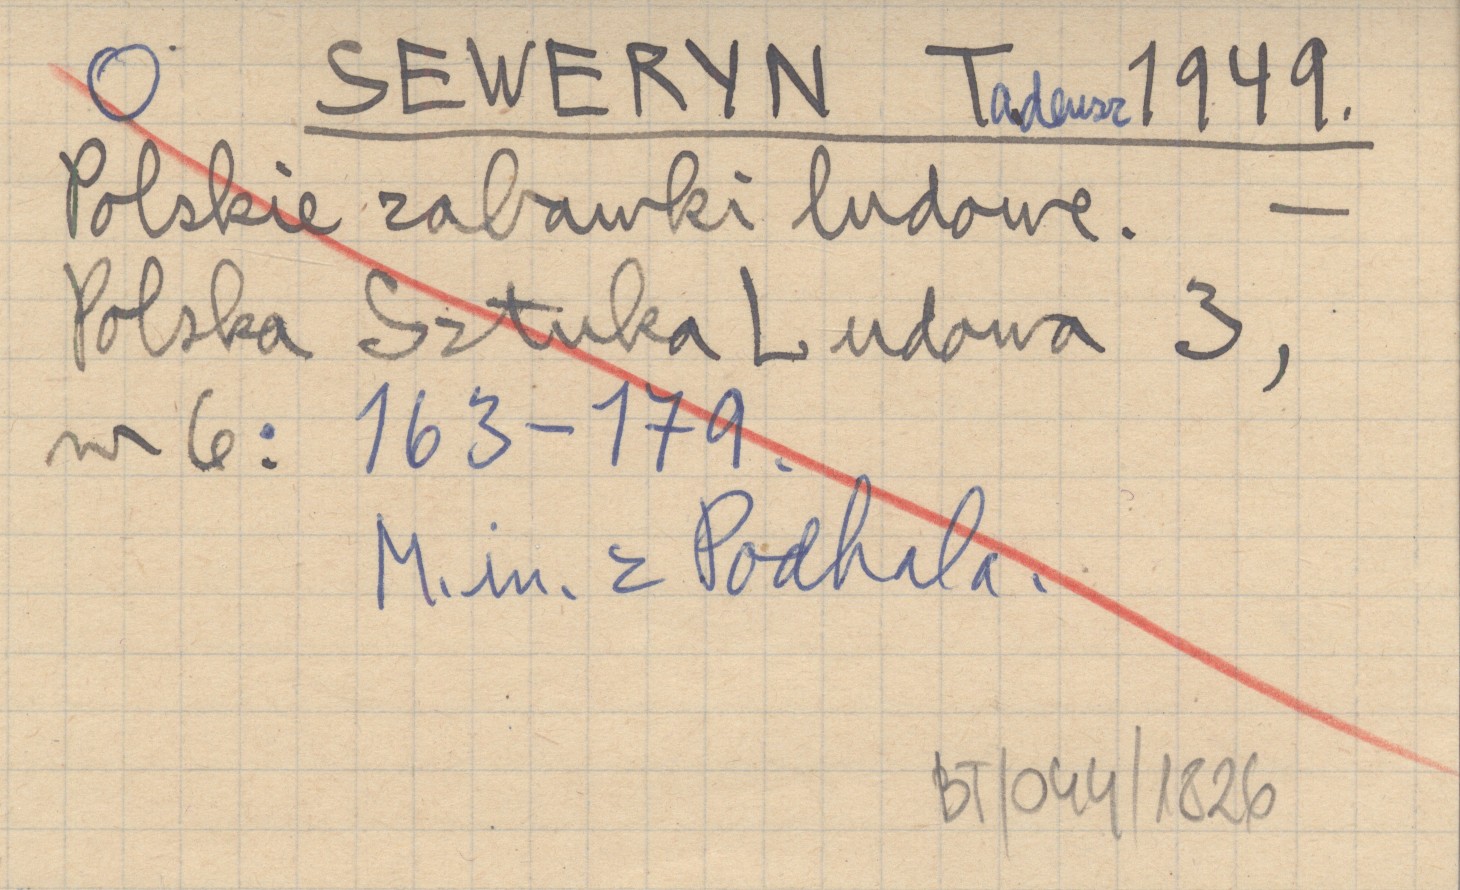 SEWERYN Tadeusz 1949.
Polskie zabawki ludowe. —
Polska Sztuka Ludowa 3,
nr 6: 163-179.
M.in. z Podhala.
BT/044/1826